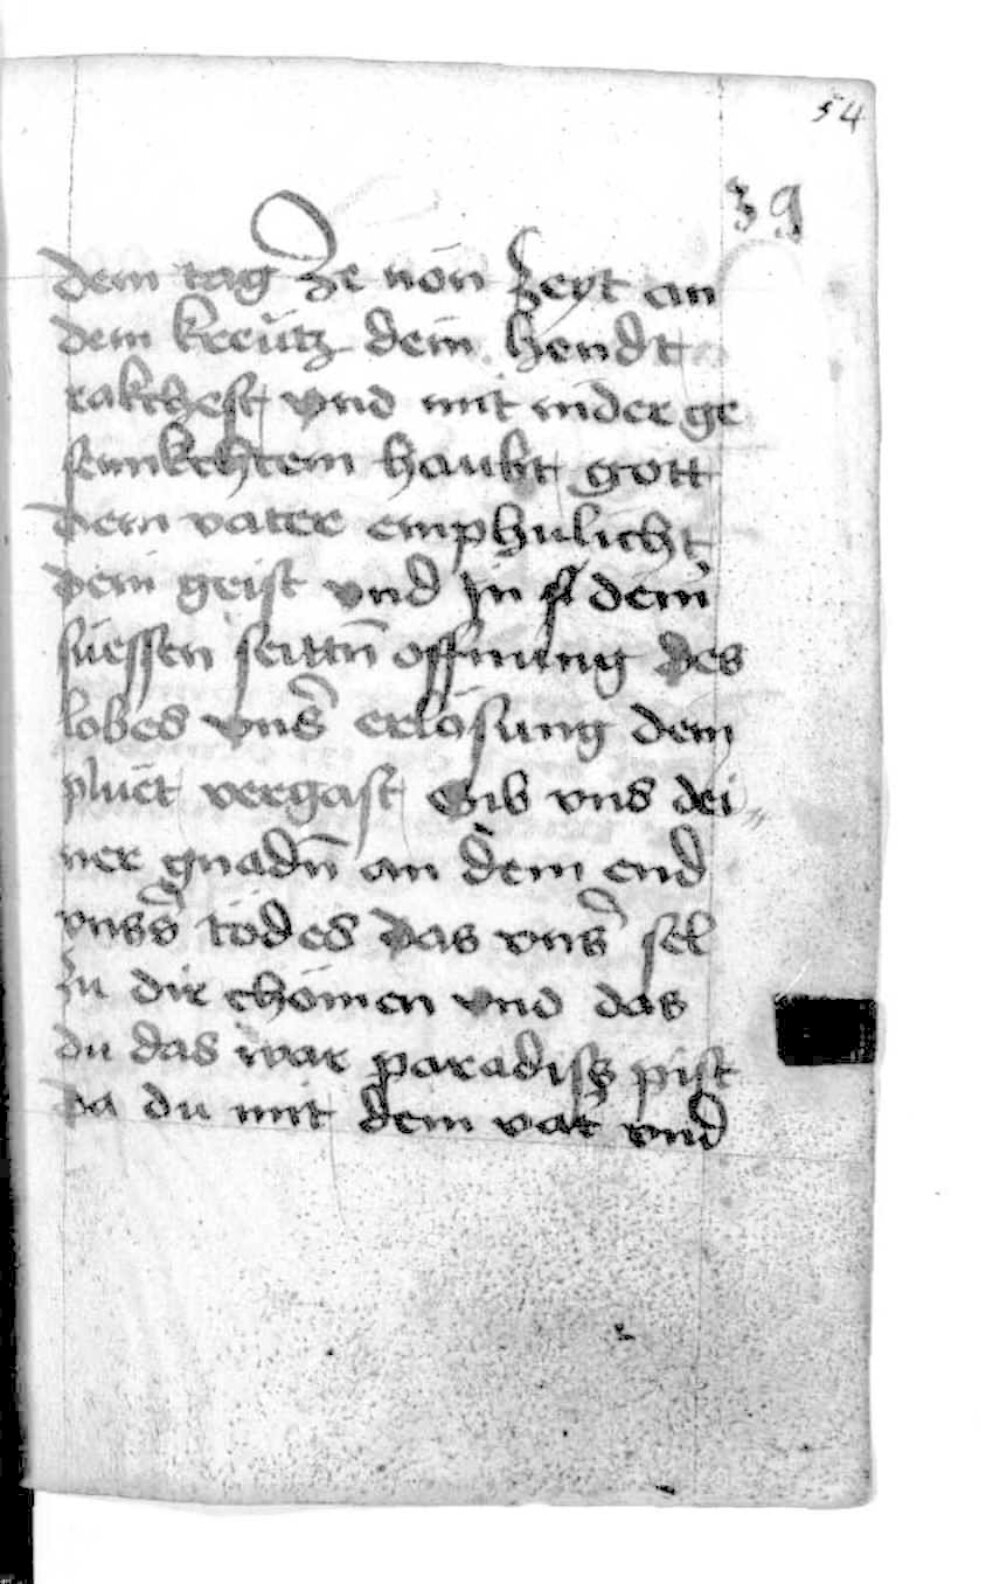 54
39
dem tag ze nön zeyt an
dem kreütz dein hendt
rakchest vnd mit nider ge
sunkchtem haubt gott
dem vater emphulicht
dein geist vnd in dem
süessen seittn̄ offnung des
lobes vns̄ erlösung dem
pluet vergast Gib vns dei
ner gnadn̄ an dem end
vnss̄ tödes das vns̄ sel
zu dir chömen vnd das
du das war paradisz pist
da du mit dem vat̄ vnd